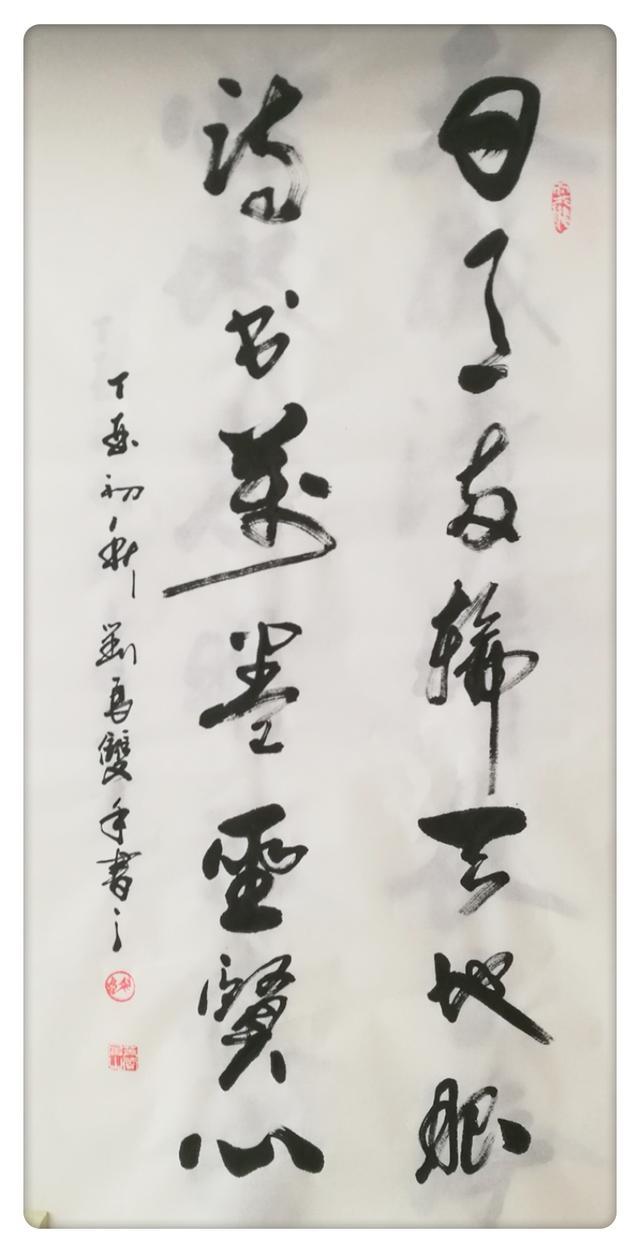 日月两輪天地眼
诗书萬卷聖賢心
丁酉初秋劉雙手書之